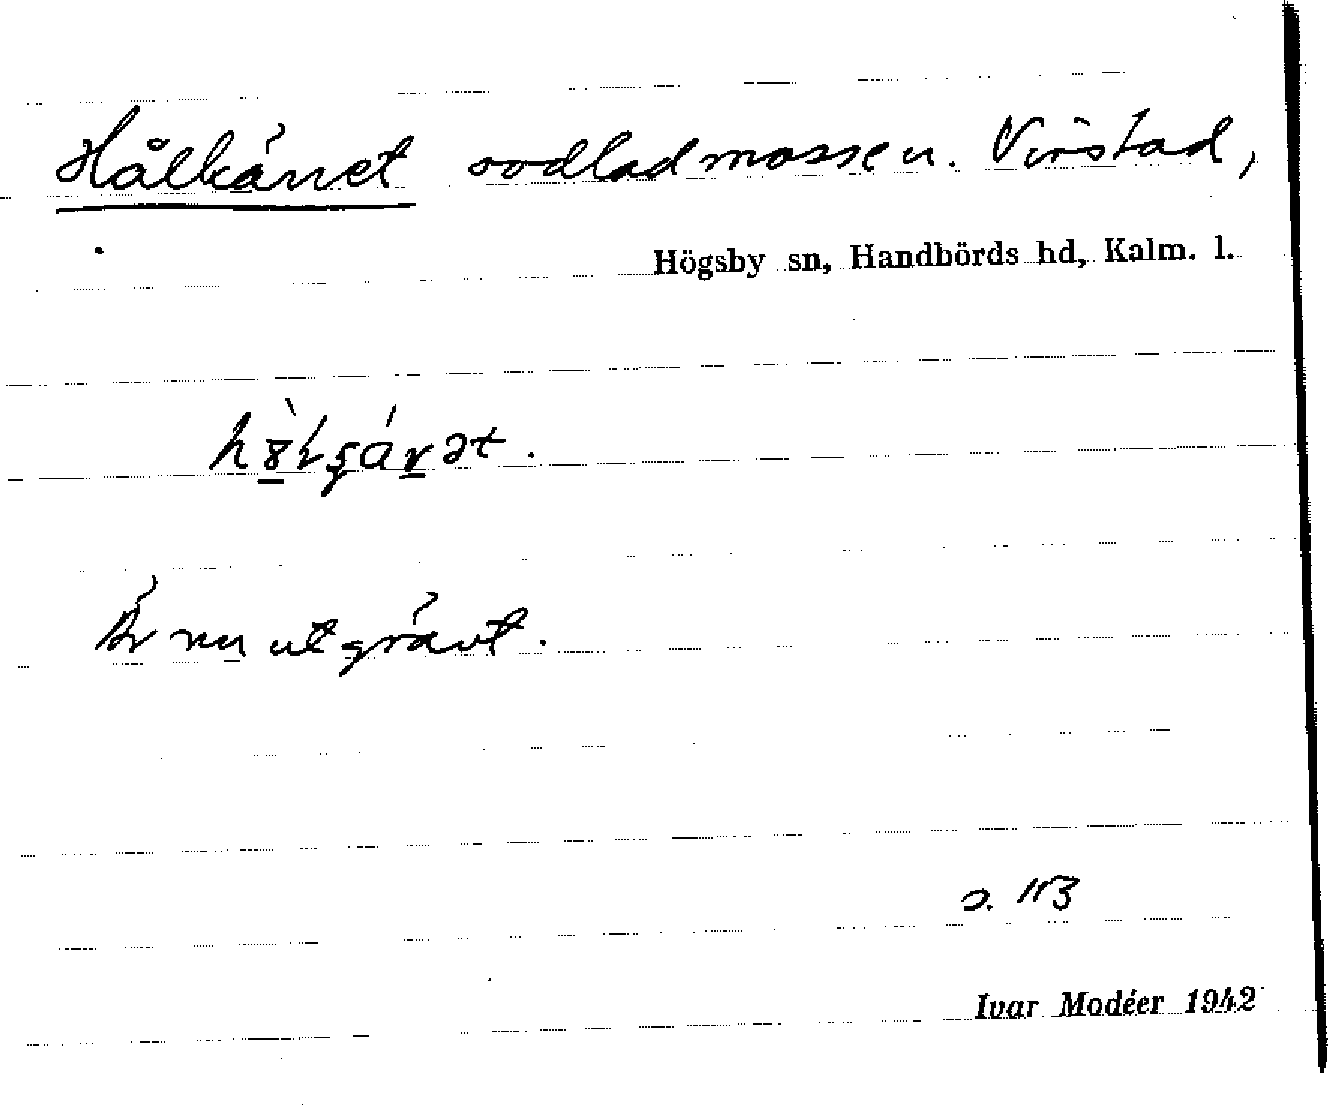 Hålkärret oodlad mossen. Virstad,
Högsby sn, Handbörds hd, Kalm. l.
Är nu utgrävt.
s. 113
Ivar Modéer 1942